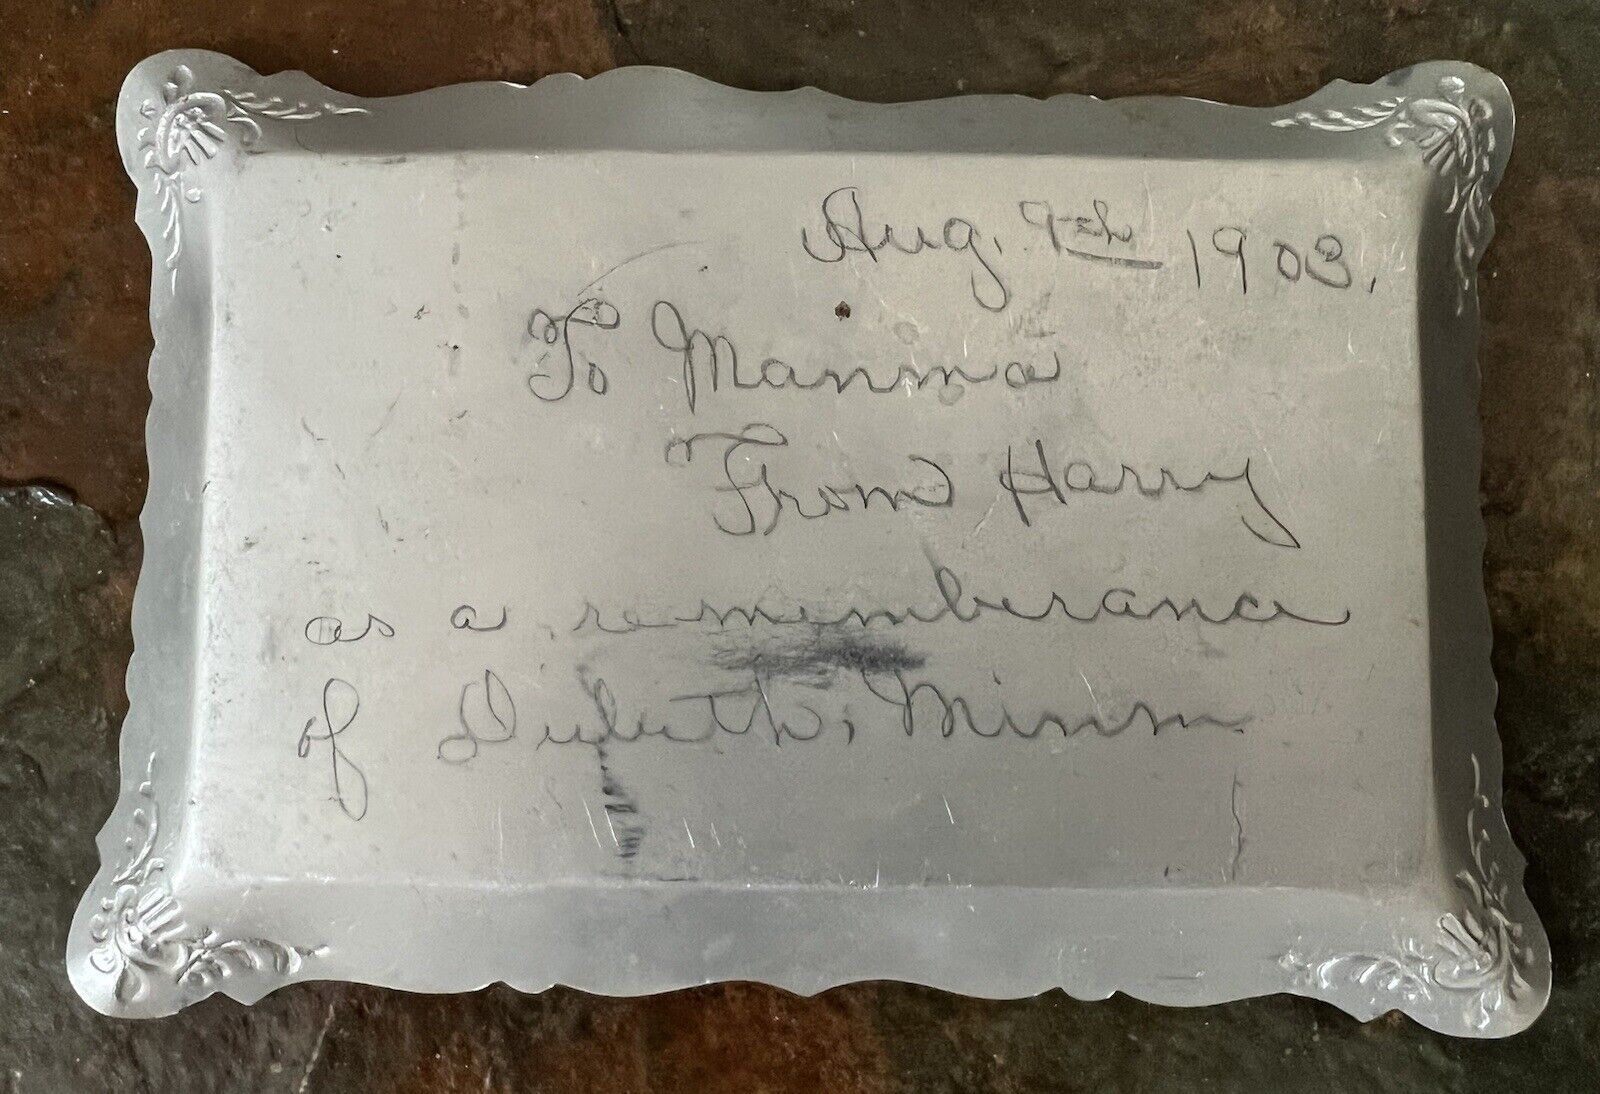 Aug. 9th 1903.
To Mamma
From Harry
as a rememberance
of Duluth, Minn.